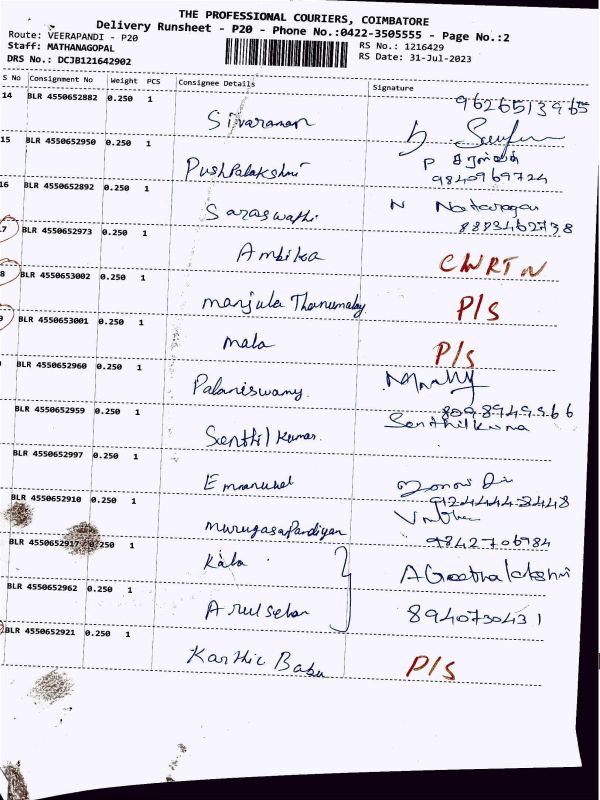 THE PROFESSIONAL COURIERS, COIMBATORE
Delivery Runsheet - P20 - Phone No.:0422-3505555 - Page No.:2
Route: VEERAPANDI - P20
RS No.: 1216429
Staff: MATHANAGOPAL
RS Date: 31-Jul-2023
DRS No.: DCJB121642902
S No Consignment No Weight PCS Consignee Details Signature
14 BLR 4550652882 0.250 1 Sivaraman 9626513965
15 BLR 4550652950 0.250 1 Pushpalakshmi P 9840969724
16 BLR 4550652892 0.250 1 Saraswathi N Natarajan 8883462738
7 BLR 4550652973 0.250 1 Ambika CWRTN
8 BLR 4550653002 0.250 1 Manjula Thanumalay P/S
9 BLR 4550653001 0.250 1 Mala P/S
BLR 4550652960 0.250 1 Palaniswamy
BLR 4550652959 0.250 1 Senthil Kumar Senthilkuma
BLR 4550652997 0.250 1 Emmanuel
BLR 4550652910 0.250 1 Murugasapandiyan 9842706984
BLR 4550652917 0.250 1 Kala A Geethalakshmi
BLR 4550652962 0.250 1 Arulselvan 8940730431
BLR 4550652921 0.250 1 Karthic Babu P/S